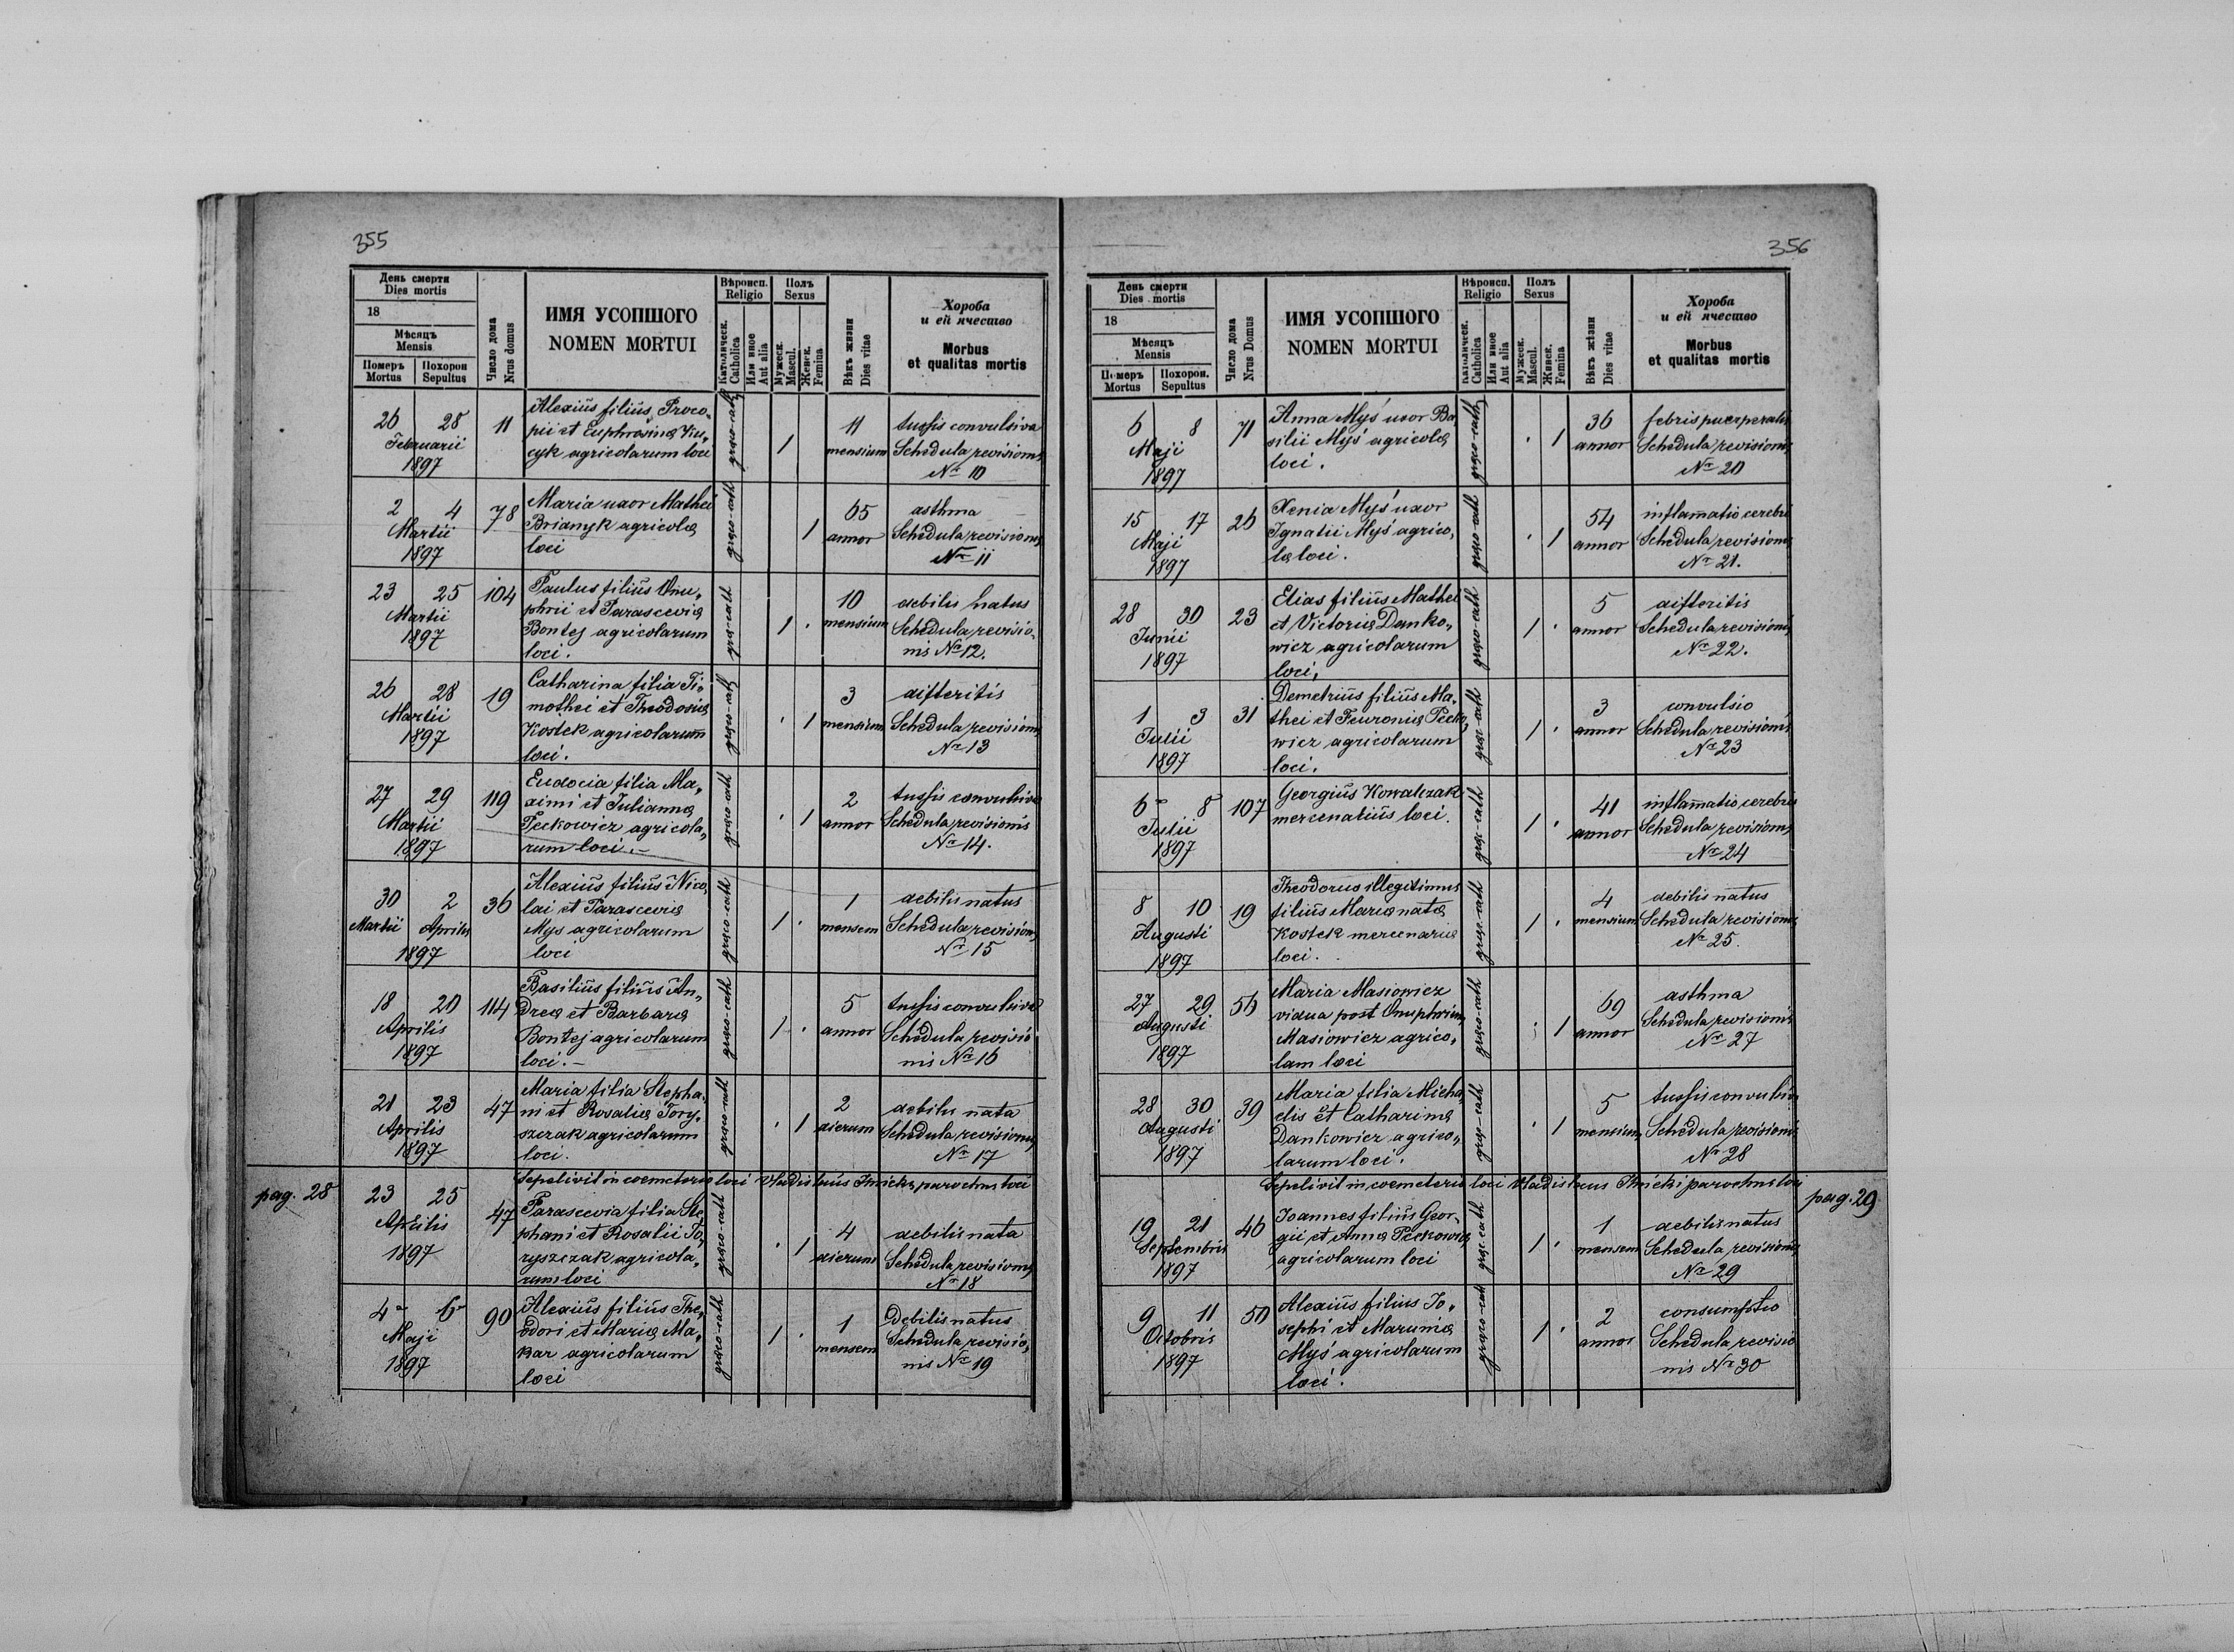 355
День смерти
Dies mortis
18
Мѣсяцъ
Mensis
Померъ Mortus
Похорон Sepultus
Число дома
Nrus domus
ИМЯ УСОПШОГО
NOMEN MORTUI
Вѣроисп.
Religio
Католическ.
Catholica
Или иное
Aut alia
Полъ
Sexus
Мужеск.
Mascul.
Женск.
Femina
Вѣкъ жизни
Dies vitae
Хороба
и ей ячество
Morbus
et qualitas mortis
26 28 11 Alexius filius Proco- 11 tussis convulsiva
Februarii pii et Euphrosinae mensium Schedula revisionis
1897 cyk agricolarum loci graeco-cath 1 No 10
2 4 78 Maria uxor Mathei 65 asthma
Martii Brianyk agricolae graeco-cath 1 annor Schedula revisionis
1897 loci No 11
23 25 104 Paulus filius Onu- 10 debilis natus
Martii phrii et Parasceviae mensium Schedula revisio-
1897 Bontej agricolarum graeco-cath 1 . nis No 12.
loci.
26 28 19 Catharina filia Ti- 3 difteritis
Martii mothei et Theodosiae graeco-cath . 1 mensium Schedula revisionis
1897 Kostek agricolarum No 13
loci.
27 29 119 Eudocia filia Ma- 2 tussis convulsiva
Martii ximi et Julianna graeco-cath . 1 annor Schedula revisionis
1897 Peckowicz agricola- No 14.
rum loci.-
30 2 36 Alexius filius Nico- 1 debilis natus
Martii Aprilis lai et Parasceviae graeco-cath 1 . mensem Schedula revisionis
1897 Mys agricolarum No 15
loci
18 20 114 Basilius filius An- 5 tussis convulsiva
Aprilis dreae et Barbarae graeco-cath 1 . annor Schedula revisio
1897 Bontej agricolarum nis No 16
loci.-
21 23 47 Maria filia Stepha- 2 debilis nata
Aprilis ni et Rosaliae Tory- graeco-cath . 1 dierum Schedula revisionis
1897 szczak agricolarum No 17
loci.
Sepelivit in coemeterio loci parochus loci
pag. 28
23 25 47 Parascevia filia Ste- 4 debilis nata
Aprilis phani et Rosalii To- graeco-cath . 1 dierum Schedula revisionis
1897 ryszczak agricola- No 18
rum loci
4 6 90 Alexius filius The- 1 Debilis natus
Maji odori et Mariae Ma- graeco-cath 1 . mensem Schedula revisio-
1897 kar agricolarum nis No 19
loci
356
День смерти
Dies mortis
18
Мѣсяцъ
Mensis
Померъ Mortus
Похорон. Sepultus
Число дома
Nrus Domus
ИМЯ УСОПШОГО
NOMEN MORTUI
Вѣроисп.
Religio
Католическ.
Catholica
Или иное
Aut alia
Полъ
Sexus
Мужеск.
Mascul.
Женск.
Femina
Вѣкъ жѣзни
Dies vitae
Хороба
и ей ячество
Morbus
et qualitas mortis
6 8 71 Anna Myś uxor Ba- 36 febris puerperalis
Maji silii Myś agricolae graeco-cath . 1 annor Schedula revisionis
1897 loci. No 20
15 17 26 Xenia Myś uxor 54 inflamatio cerebri
Maji Ignatii Myś agrico- graeco-cath . 1 annor Schedula revisionis
1897 lae loci. No 21.
28 30 23 Elias filius Mathei 5 difteritis
Junii et Victoriae Danko- graeco-cath 1 . annor Schedula revisionis
1897 wicz agricolarum No 22.
loci,
1 3 31 Demetrius filius Ma- 3 convulsio
Julii thei et Feuroniae Pecko- graec-cath 1 . annor Schedula revisionis
1897 wicz agricolarum No 23
loci.
6 8 107 Georgius Kowalczak 41 inflamatio cerebri
Julii mercenatius loci. graec-cath 1 . annor Schedula revisionis
1897 No 24
8 10 19 Theodorus illegitimus 4 debilis natus
Augusti filius Mariae natae graec-cath 1 . mensium Schedula revisionis
1897 Kostek mercenariae No 25.
loci.
27 29 56 Maria Masiowicz 69 asthma
Augusti vidua post Onuphrium graeco-cath . 1 annor Schedula revisionis
1897 Masiowicz agrico- No 27
lam loci
28 30 39 Maria filia Micha- 5 tussis convulsiva
Augusti elis et Catharinae graec-cath . 1 mensium Schedula revisionis
1897 Dankowicz agrico- No 28
larum loci.
Sepelivit in coemeterio loci parochus loci
pag. 29
19 21 46 Joannes filius Geor- 1 debilis natus
Septembris gii et Annae Peckowicz graec-cath 1 . mensem Schedula revisionis
1897 agricolarum loci No 29
9 11 50 Alexius filius Jo- 2 consumptio
Octobris sephi et Maruniae graeco-cath 1 . annor Schedula revisio
1897 Myś agricolarum nis No 30
loci.